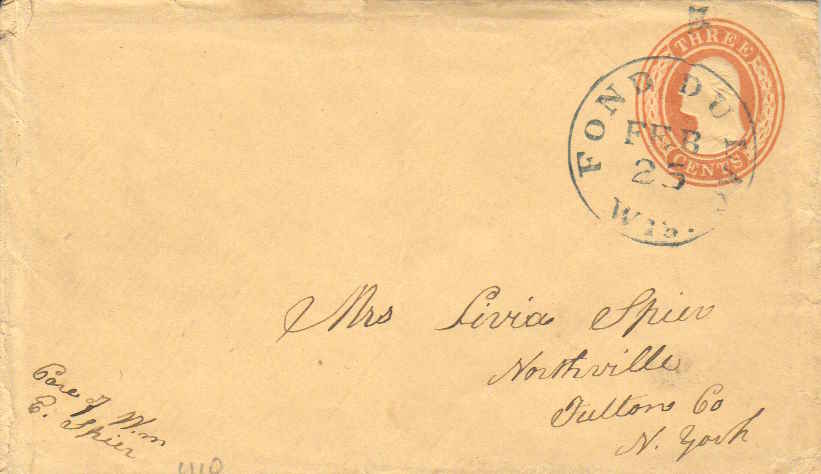 THREE
CENTS
FOND DU LAC
FEB
25
Wis.
Mrs Livia Spier
Northville
Fulton Co
N. York
Care of Wm
E. Spier